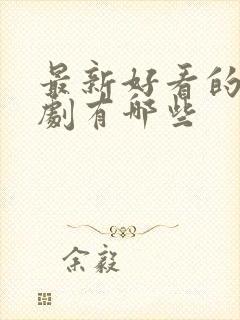 最新好看的
劇有哪些
余毅